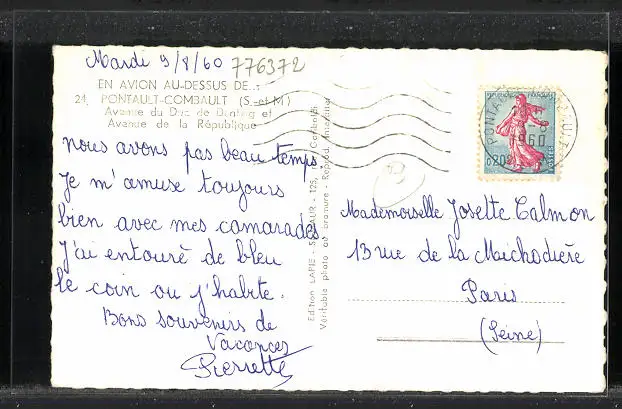 Mardi 9/8/60 776372
EN AVION AU-DESSUS DE...
21. PONTAULT-COMBAULT (S.-et-M.)
Avenue du Duc de Dantzig et
Avenue de la République
nous avons pas beau temps
Je m'amuse toujours
bien avec mes camarades
J'ai entouré de bleu
le coin ou j'habite.
Bons souvenirs de
Vacances
Pierrette
Edition LAPIE - ST-MAUR - 125,
Véritable photo au bromure - Reprod. interdite
REPUBLIQUE FRANÇAISE
0,20
POSTES
1960
Mademoiselle Josette Calmon
13 rue de la Michodière
Paris
(Seine)